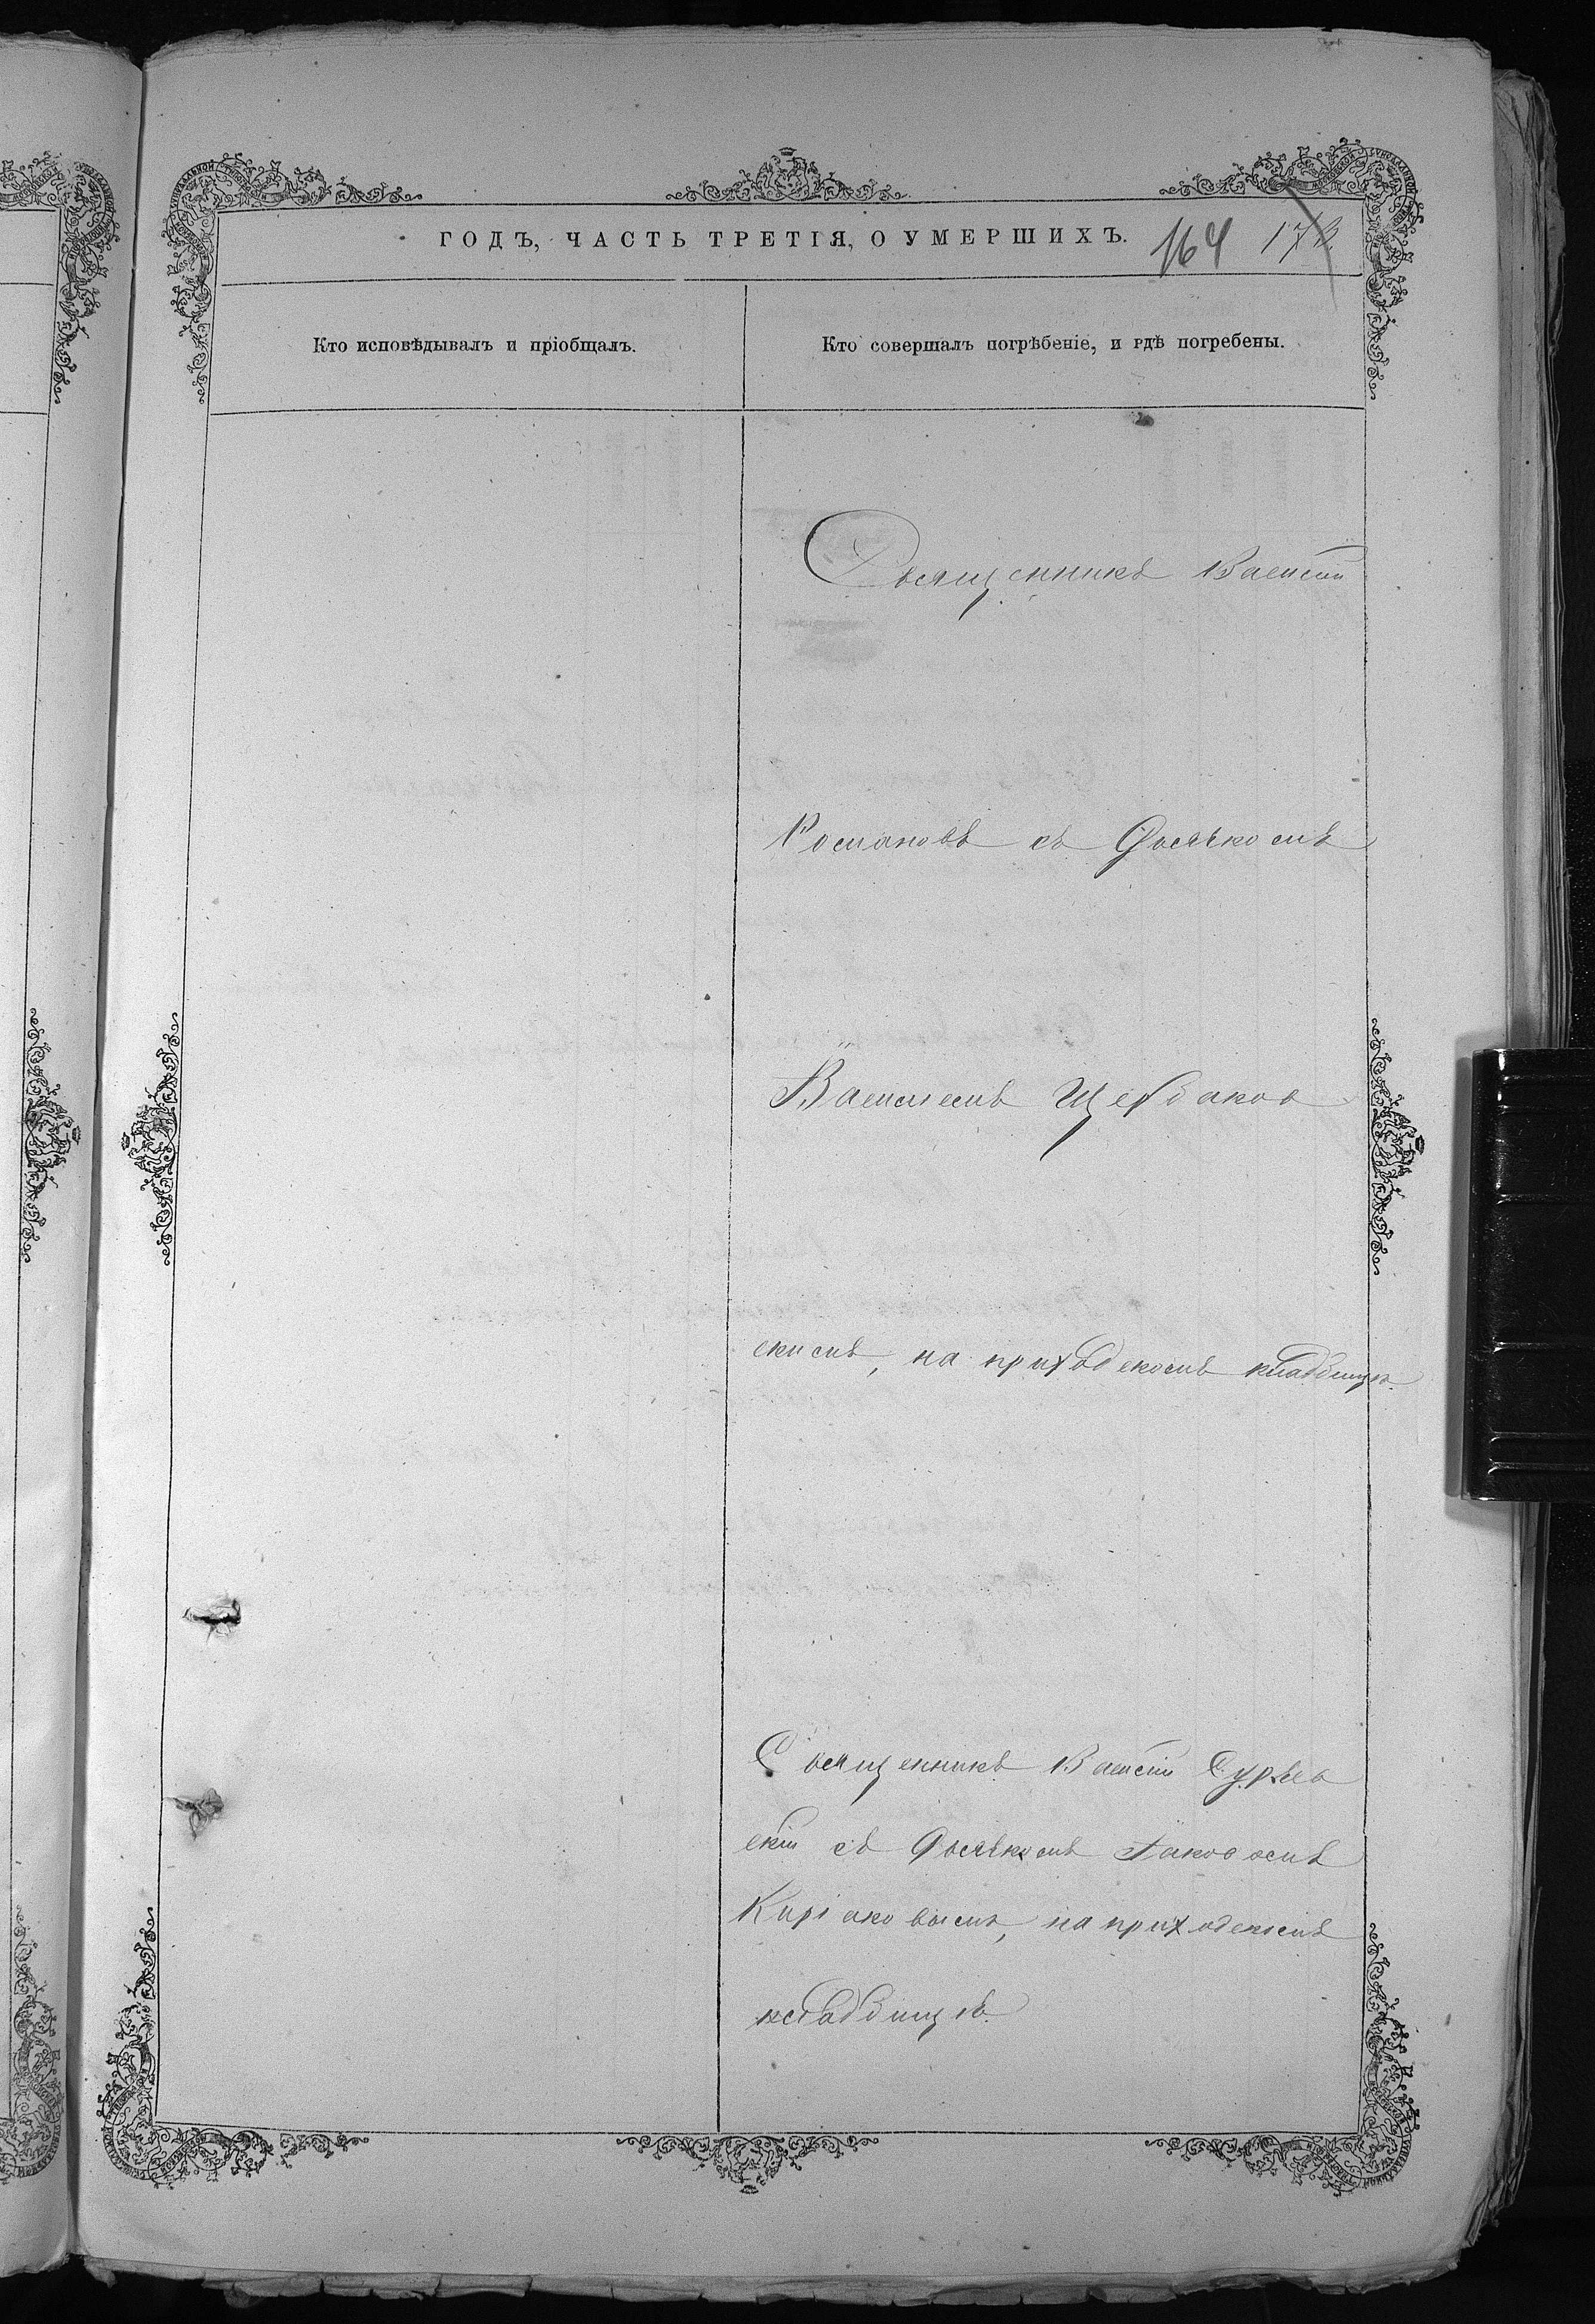 ГОДЪ, ЧАСТЬ ТРЕТІЯ, О УМЕРШИХЪ. 164
Кто исповѣдывалъ и пріобщалъ.
Кто совершалъ погрѣбеніе, и гдѣ погребены.
Священникъ Василій
Романовъ съ Дьячкомъ
Василіемъ Щербаков
скимъ, на приходскомъ кладбищѣ.
Священникъ Василій Сурьев
скій съ Дьячкомъ Іаковомъ
Киріаковымъ, на приходскомъ
кладбищѣ.